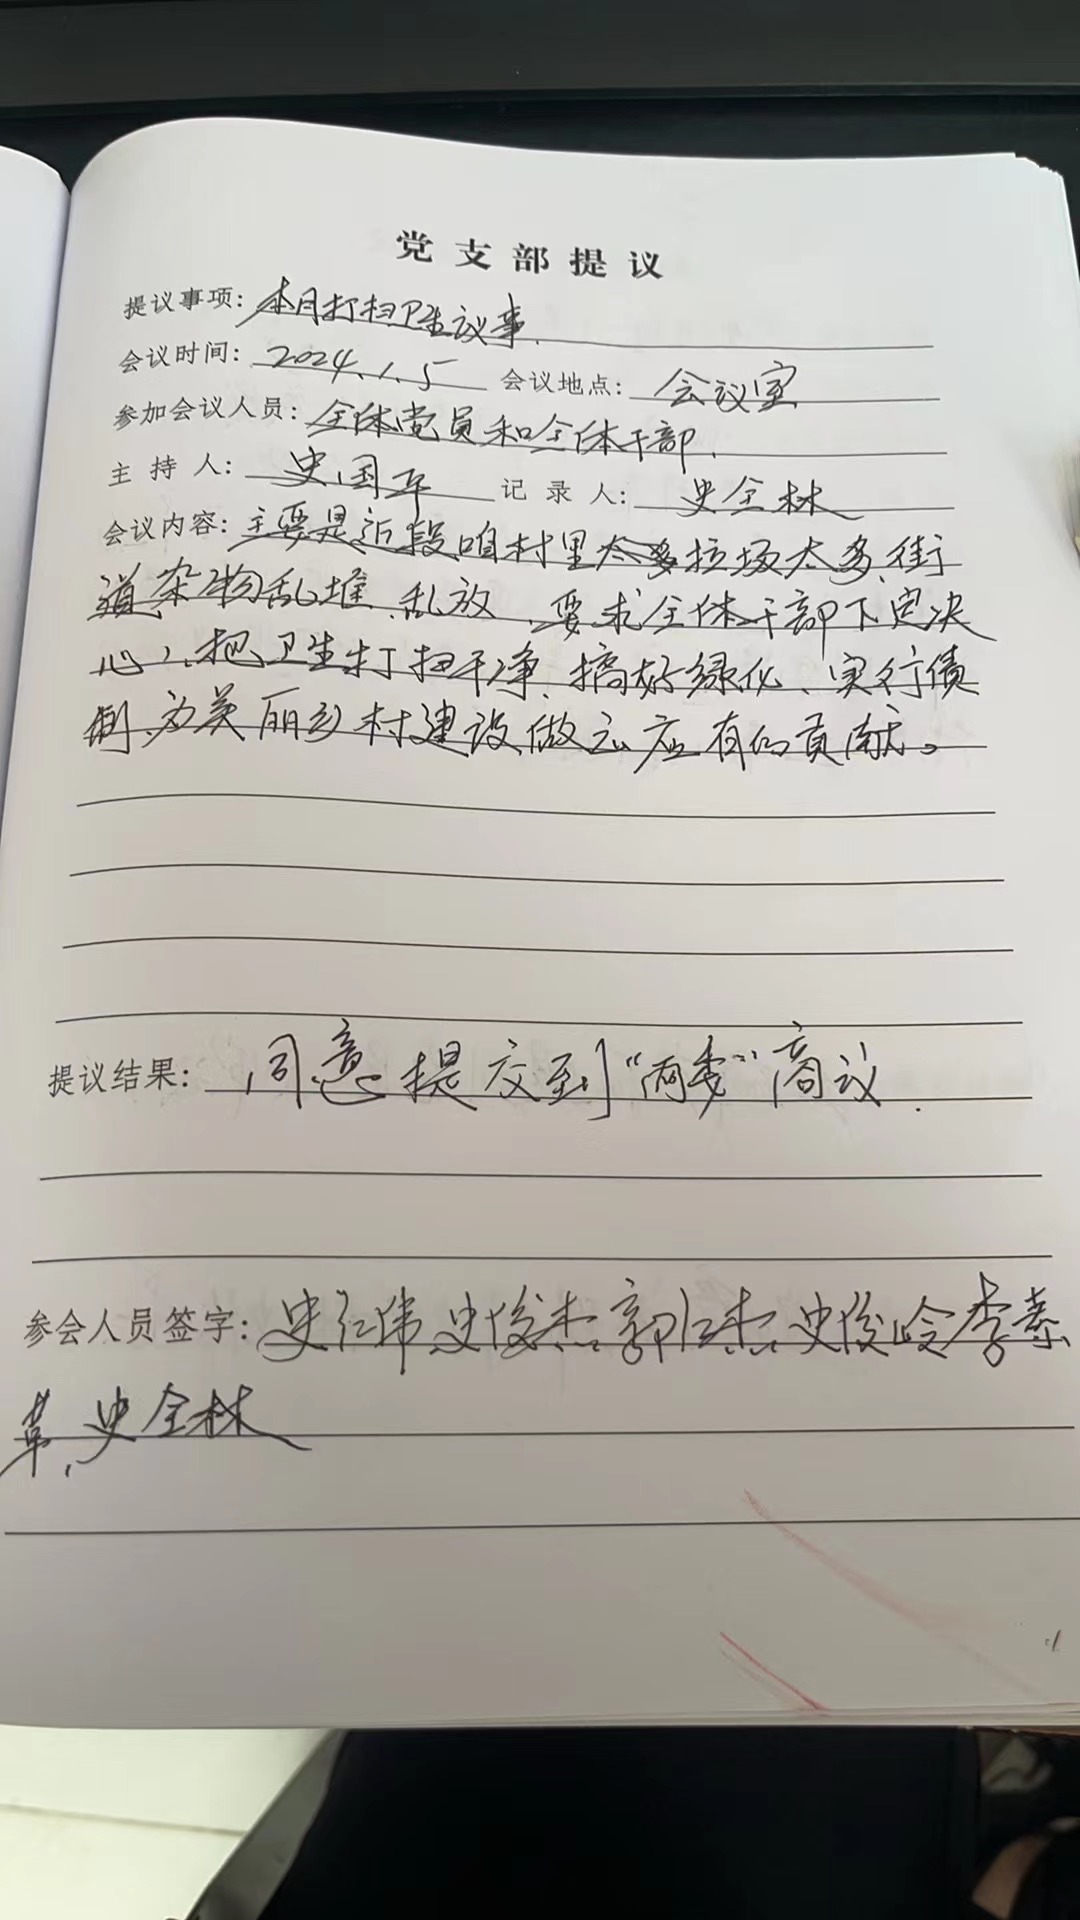 党支部提议
提议事项：本月打扫卫生议事.
会议时间：2024.1.5 会议地点：会议室
参加会议人员：全体党员和全体干部.
主持人：史国平 记录人：史全林
会议内容：主要是近段咱村里垃圾太多、街
道杂物乱堆、乱放、要求全体干部下定决
心、把卫生打扫干净、搞好绿化、实行
制、为美丽乡村建设做出应有的贡献。
提议结果：同意提交到“两委”商议.
参会人员签字：史仁伟 史俊杰 郭仁杰 史俊岭 李
革、史全林